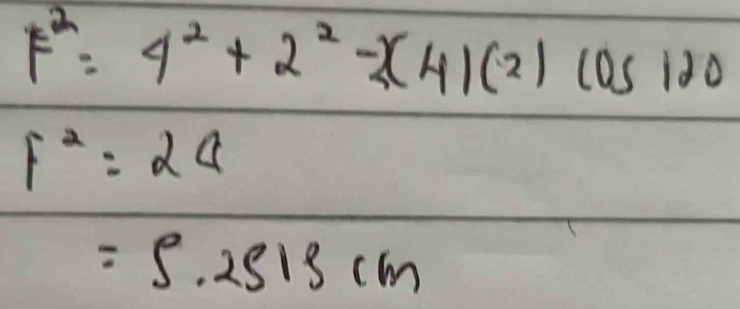 F² = 4² + 2² - 2(4)(2) cos 120
F² = 28
= 5.2915 cm